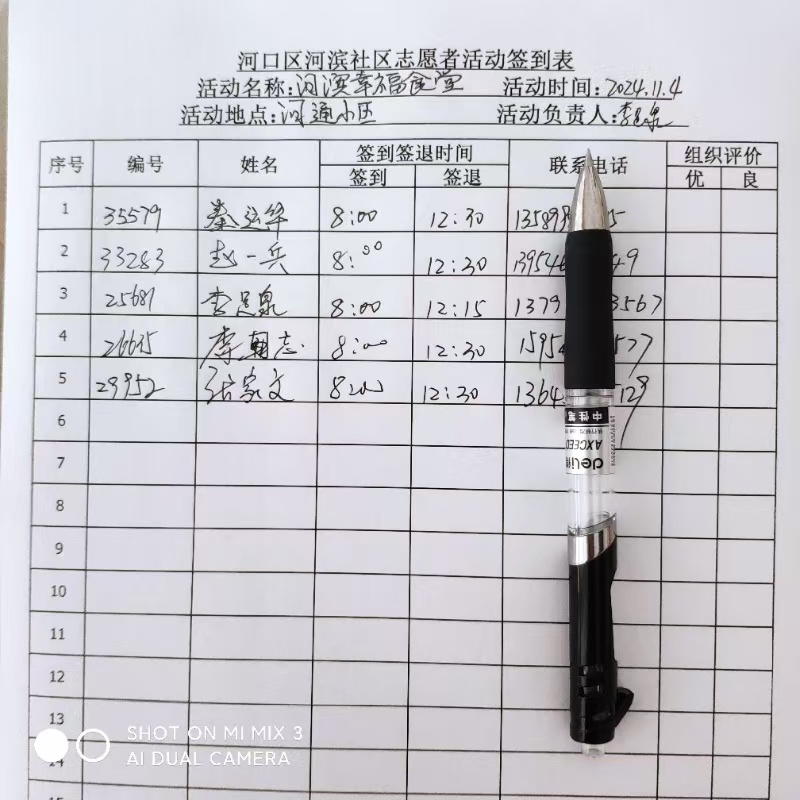 河口区河滨社区志愿者活动签到表
活动名称:河滨幸福食堂 活动时间:2024.11.4
活动地点:河通小区 活动负责人:李吴泉
序号 编号 姓名 签到签退时间 联系电话 组织评价
签到 签退 优 良
1 35579 秦运华 8:00 12:30 135898 5
2 33283 赵一兵 8:00 12:30 13954 49
3 25681 8:00 12:15 1379 3567
4 26635 李翰志 8:00 12:30 1595 577
5 29952 张家文 8:00 12:30 1364 128
6
7
8
9
10
11
12
13
14
15
中性笔
deli AXCEED
SHOT ON MI MIX 3
AI DUAL CAMERA